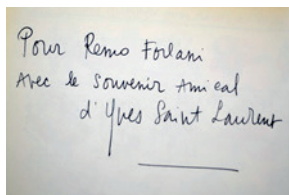 Pour Remo Forlani
Avec le souvenir amical
d'Yves Saint Laurent